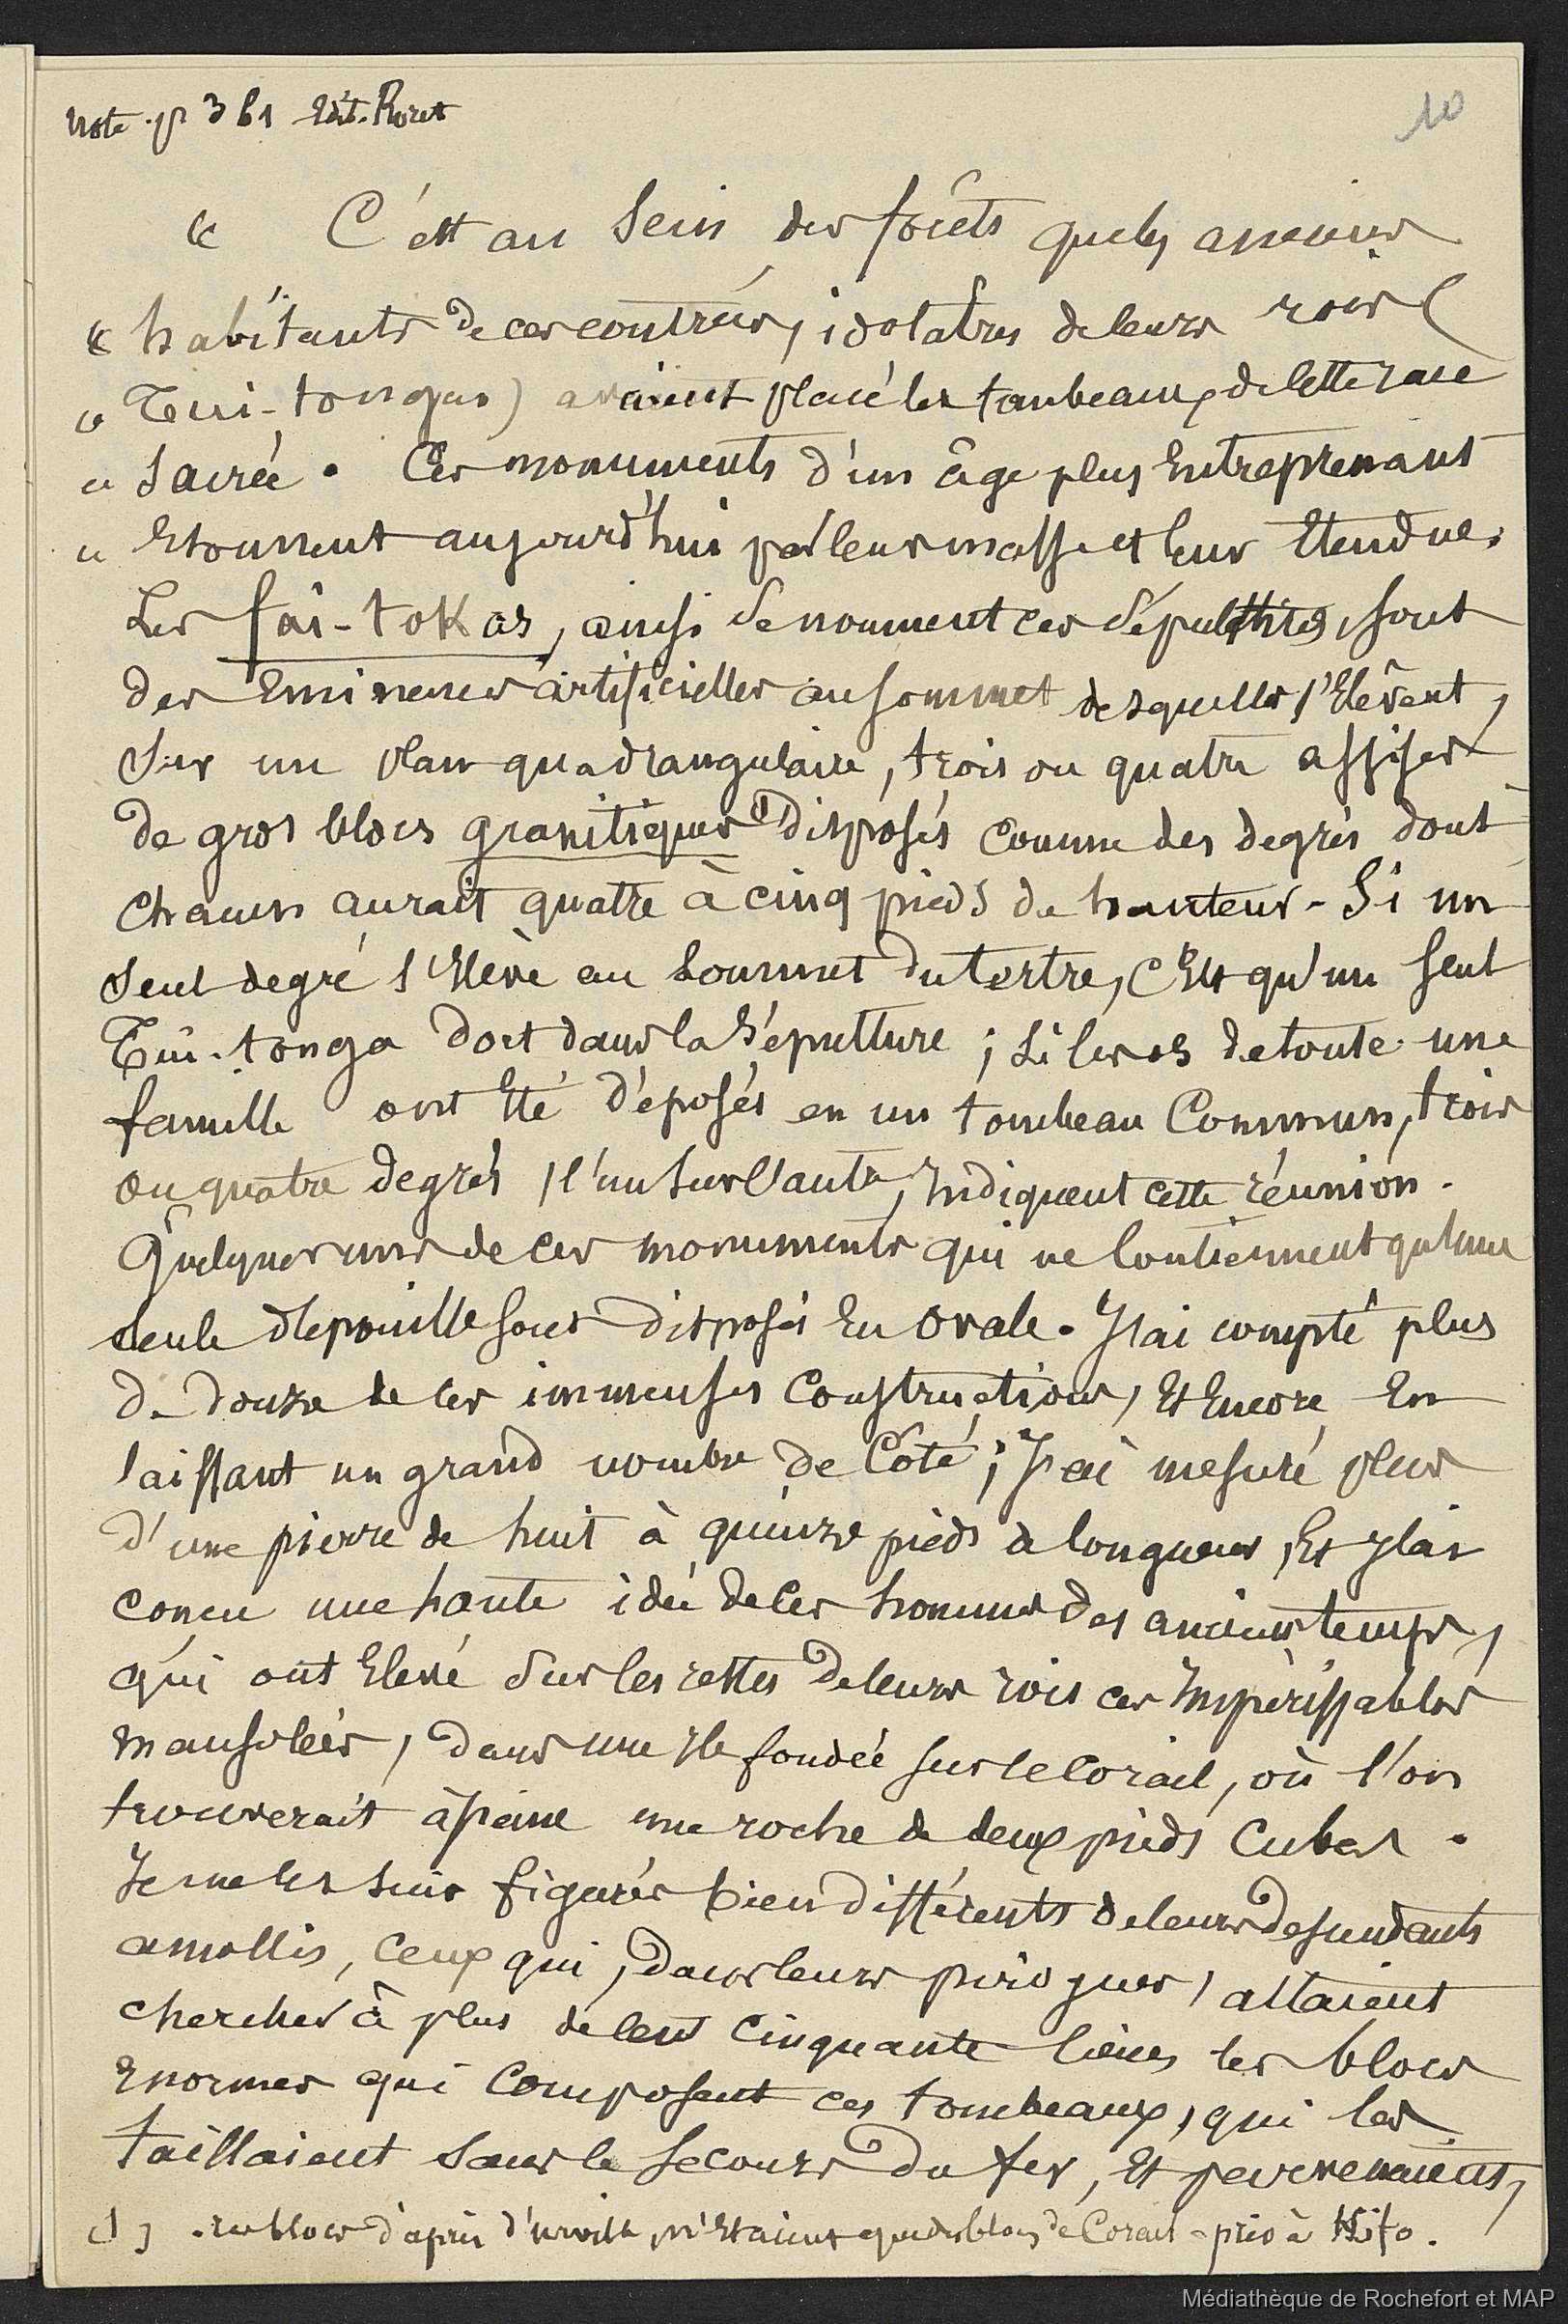 Note. p 361 Edit. Roret
10
« C'est au Sein des forêts que les anciens
« habitants de ces contrées, idolatres de leurs rois (
« Tui-tongas) avaient placé les tombeaux de cette race
« Sacrée. Ces monuments d'un âge plus Entreprenant
« Etonnent aujourd'hui par leur masse et leur Etendue.
Les faï-tokas, ainsi se nomment ces sépultures, sont
des Eminences artificielles au sommet desquelles s'Elèvent,
Sur un plan quadrangulaire, trois ou quatre assises
de gros blocs granitiques (1) disposés comme des degrés dont
chacun aurait quatre à cinq pieds de hauteur. Si un
seul degré s'Elève au sommet du tertre, C'Est qu'un seul
Tui-tonga dort dans la Sépulture ; Si les os de toute une
famille ont Eté déposés en un tombeau Commun, trois
ou quatre degrés, l'un sur l'autre, Indiquent cette réunion.
Quelques uns de ces monuments qui ne Contiennent qu'une
seule dépouille sont disposés En Ovale. J'ai compté plus
de douze de ces immenses Constructions, Et Encore En
laissant un grand nombre de Côté ; J'ai mesuré plus
d'une pierre de huit à quinze pieds de longueur, Et j'ai
conçu une haute idée de ces hommes des anciens temps,
qui ont Elevé Sur les restes de leurs rois ces Impérissables
mausolées, dans une Ile fondée sur le Corail, où l'on
trouverait à peine une roche de deux pieds Cubes.
Je me les suis figurés bien différents de leurs descendants
amollis, Ceux qui, dans leurs pirogues, allaient
chercher à plus de Cent Cinquante lieues les blocs
Enormes qui Composent ces tombeaux, qui les
taillaient Sans le Secours du fer, Et parvenaient,
(1) . Les blocs d'après d'urville, n'Etaient que des blocs de Corail - pris à Hifo.
Médiathèque de Rochefort et MAP